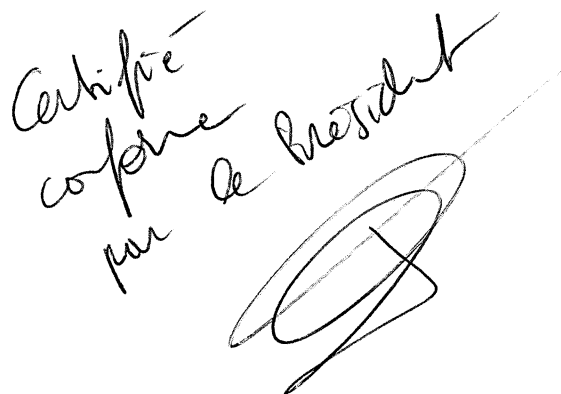 Certifié
conforme
par le Président